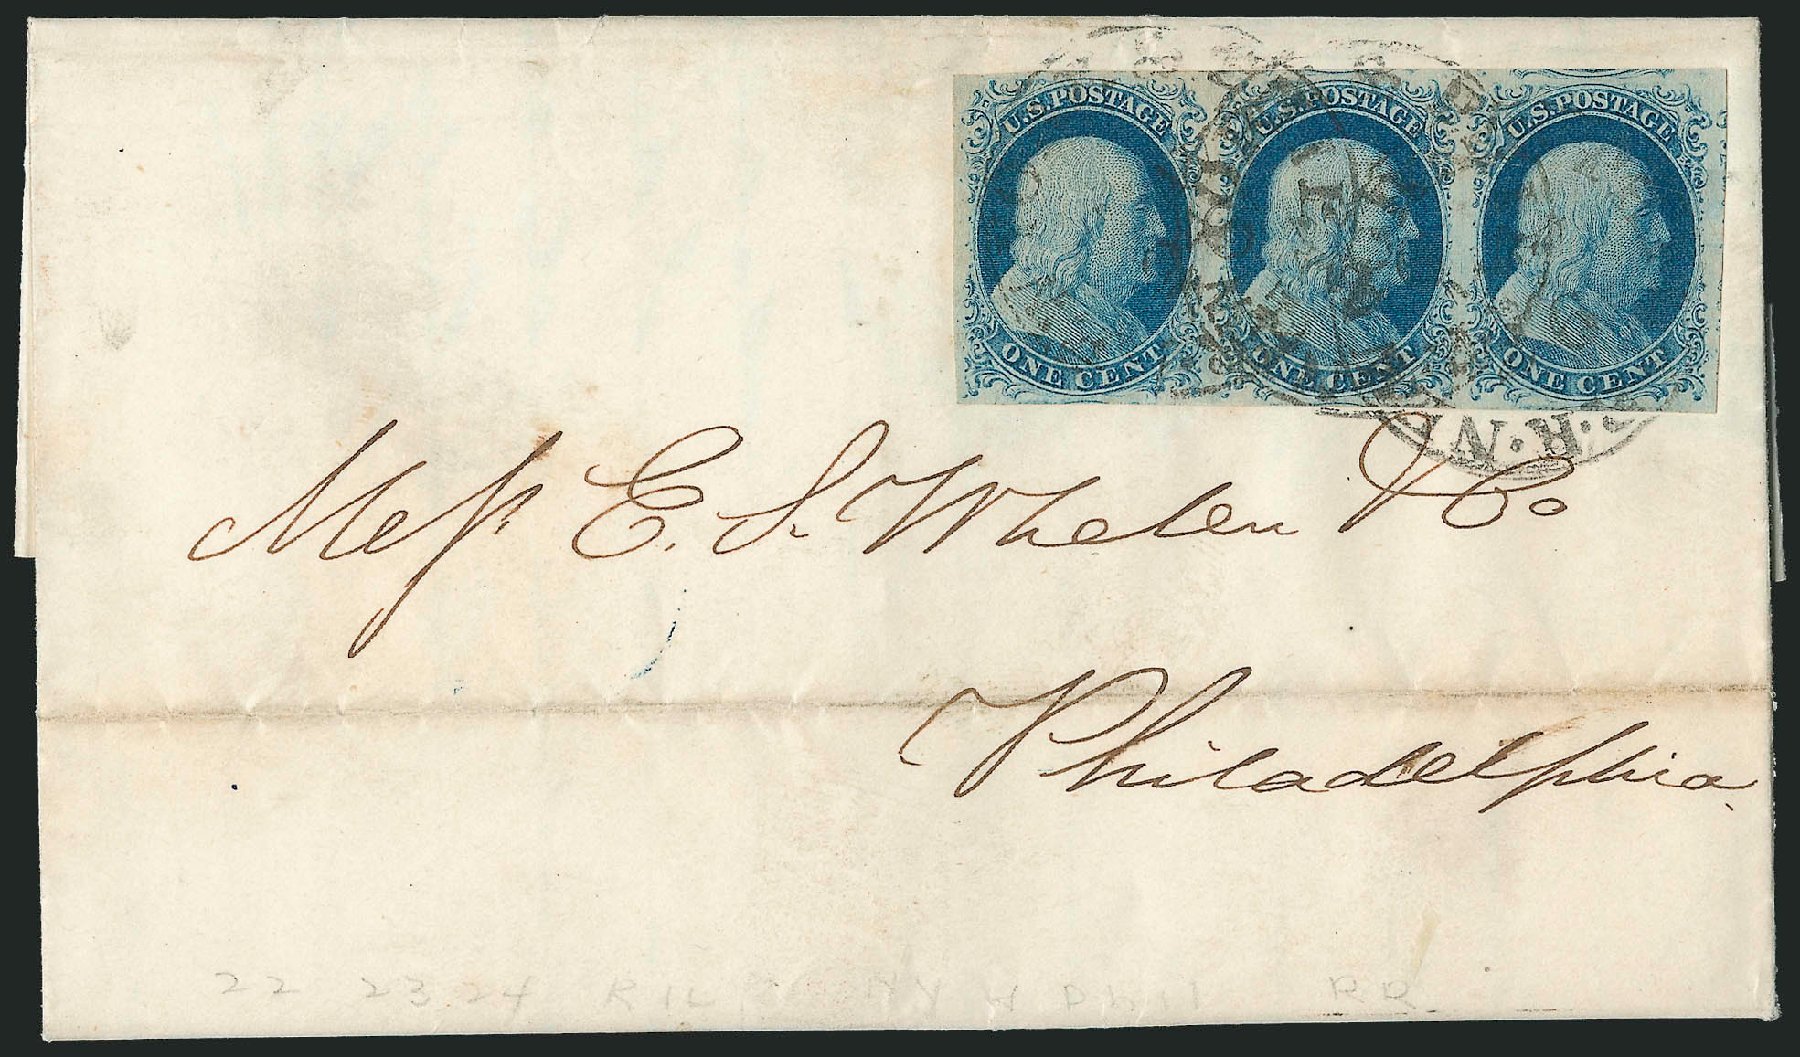 U.S. POSTAGE U.S. POSTAGE U.S. POSTAGE
ONE CENT ONE CENT ONE CENT
R. N
Mess E. S. Whelen & Co
Philadelphia
22 23 24 NY Phil RR